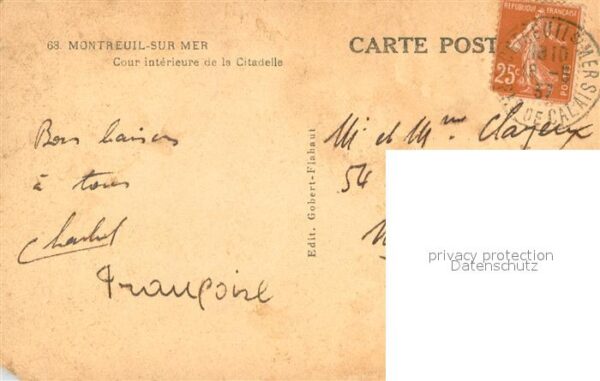 63. MONTREUIL-SUR MER
Cour intérieure de la Citadelle
CARTE POST
REPUBLIQUE FRANÇAISE
25c
POSTES
TREUIL-S-MER
1910
37
DE CALAIS
Bons baisers
à tous
Françoise
Edit. Gobert-Flahaut
Mr et Mme Clayeux
54
privacy protection
Datenschutz